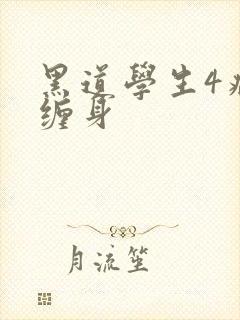 黑道學生4
缠身
月流笙